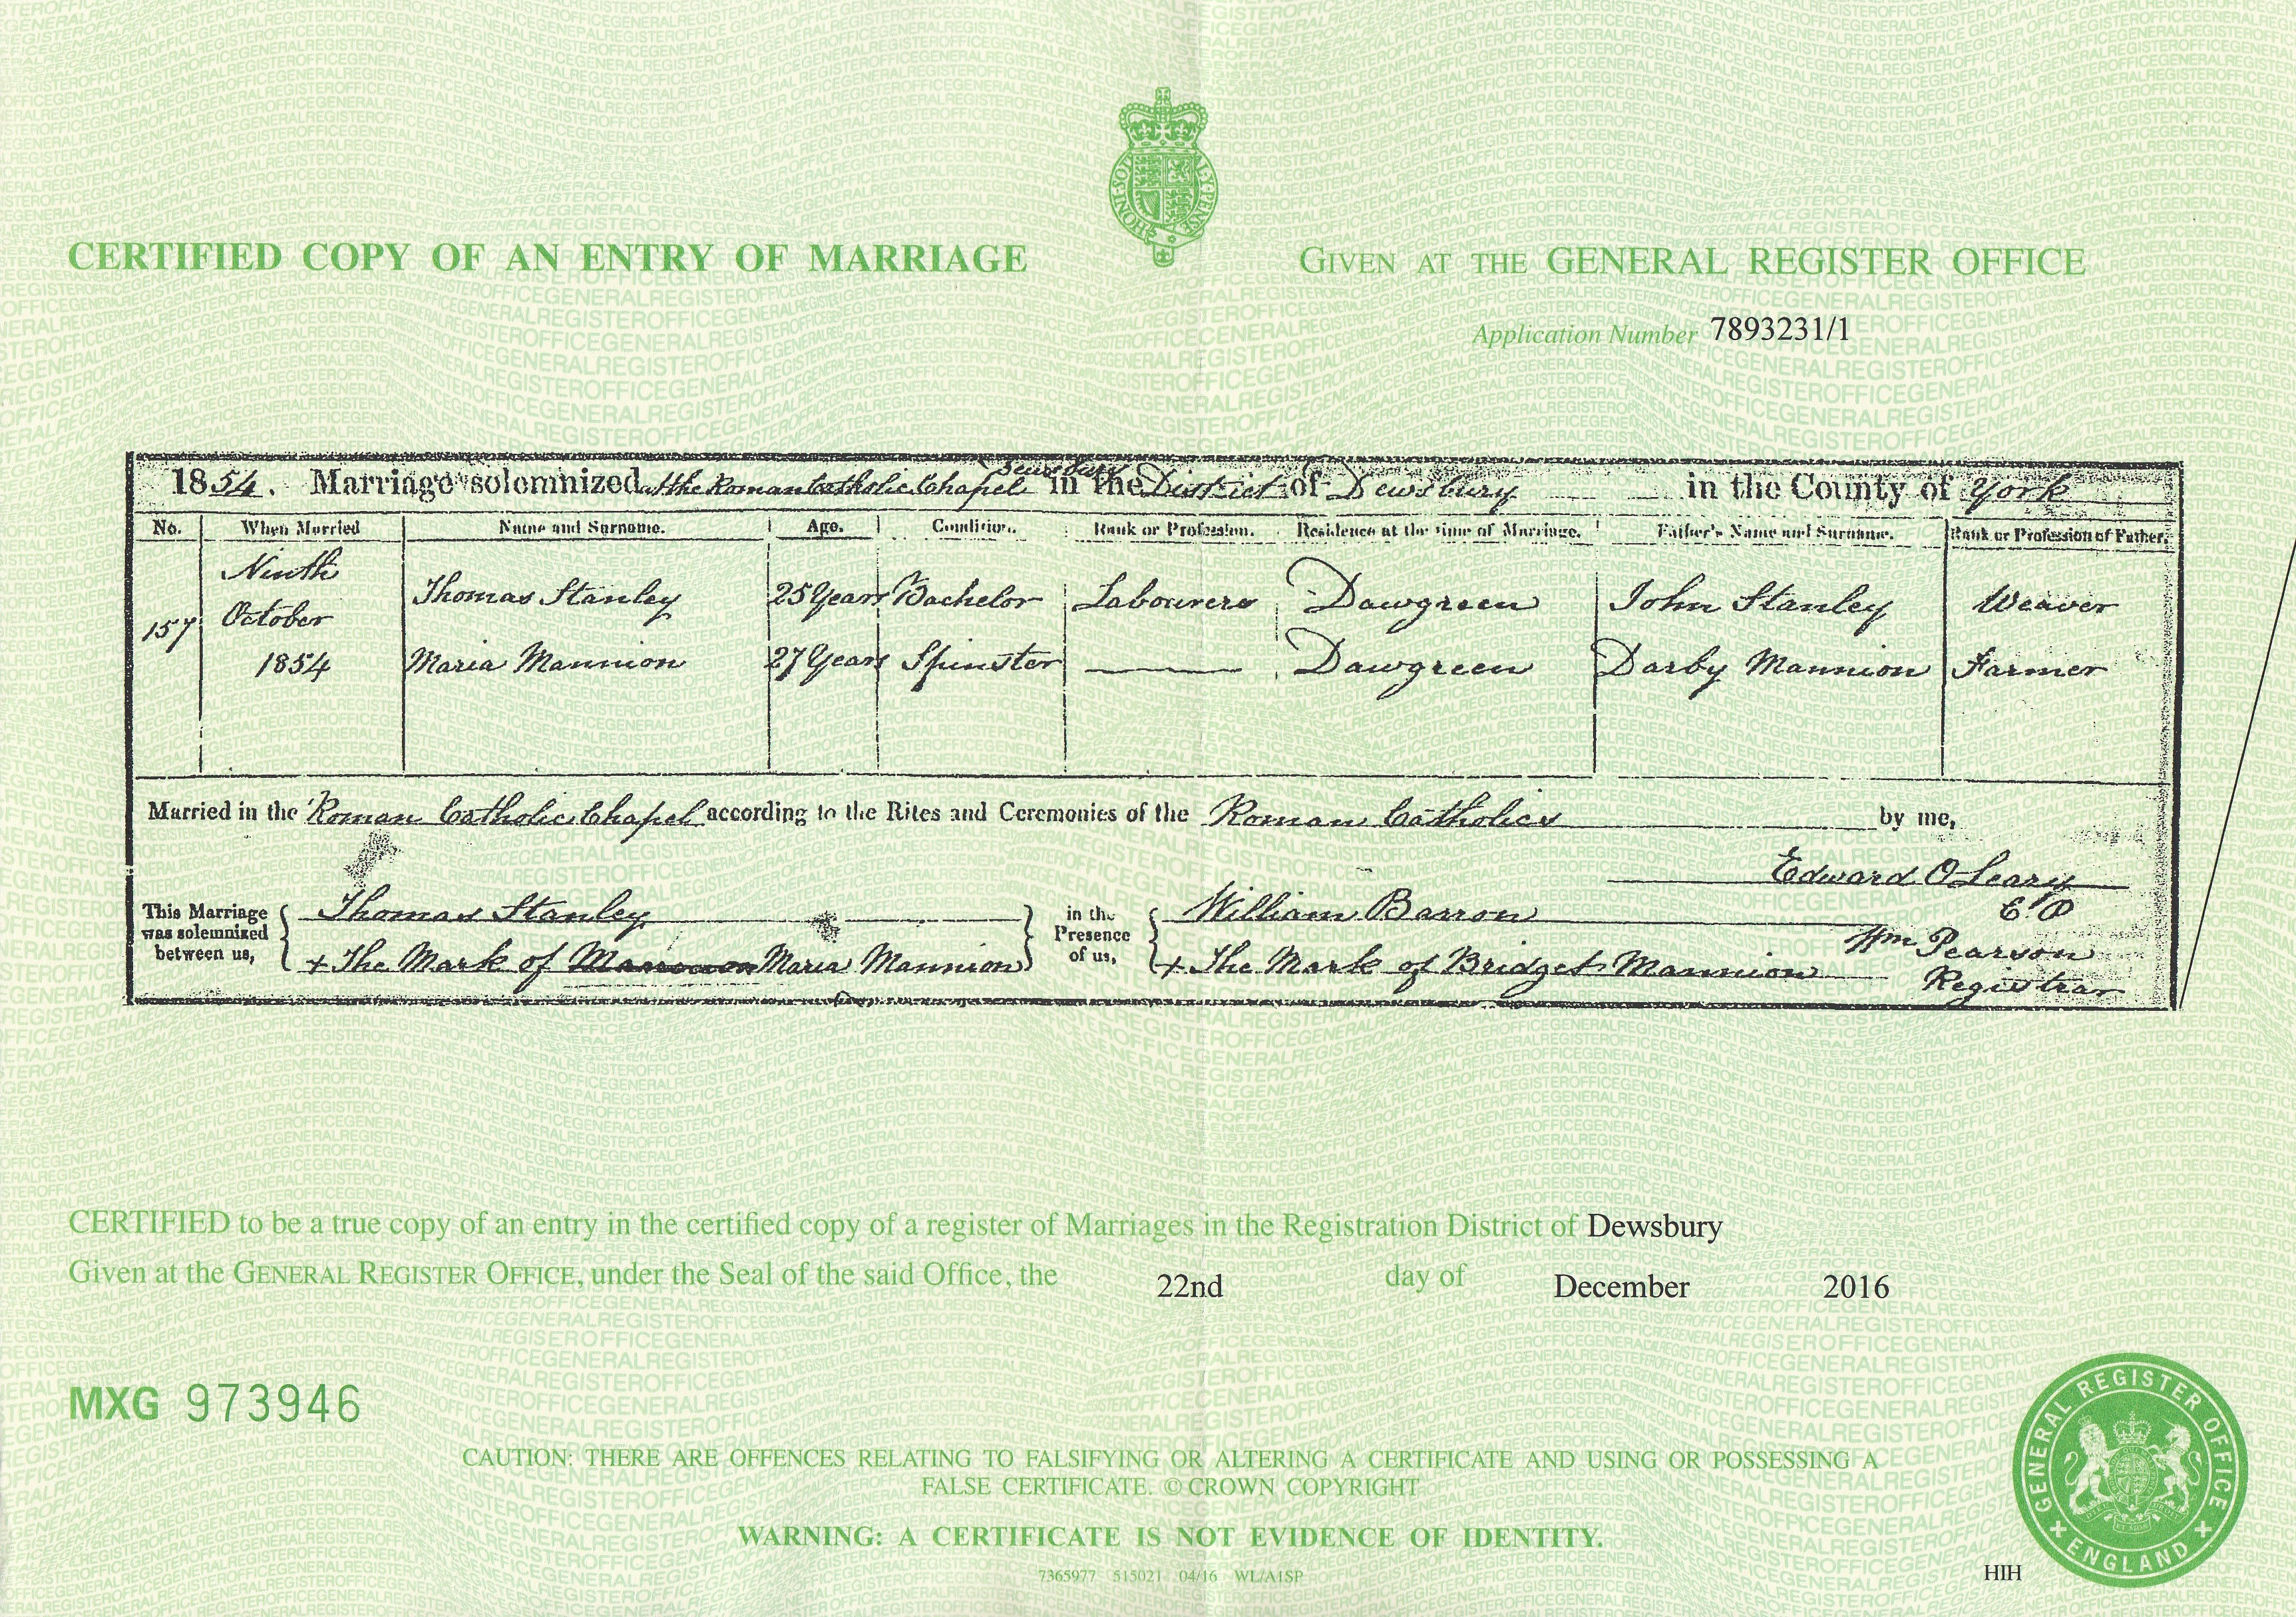 CERTIFIED COPY OF AN ENTRY OF MARRIAGE
GIVEN AT THE GENERAL REGISTER OFFICE
Application Number 7893231/1
1854. Marriage solemnized at the Roman Catholic Chapel Dewsbury in the District of Dewsbury in the County of York
No. When Married Name and Surname. Age. Condition. Rank or Profession. Residence at the time of Marriage. Father's Name and Surname. Rank or Profession of Father.
157 Ninth October 1854
Thomas Stanley 25 Years Bachelor Labourer Dawgreen John Stanley Weaver
Maria Mannion 27 Years Spinster Dawgreen Darby Mannion Farmer
Married in the Roman Catholic Chapel according to the Rites and Ceremonies of the Roman Catholics by me,
Edward O Leary
This Marriage was solemnized between us, Thomas Stanley
+ The Mark of Maria Mannion
in the Presence of us, William Barron
+ The Mark of Bridget Mannion
Wm Pearson
Registrar
CERTIFIED to be a true copy of an entry in the certified copy of a register of Marriages in the Registration District of Dewsbury
Given at the GENERAL REGISTER OFFICE, under the Seal of the said Office, the 22nd day of December 2016
MXG 973946
CAUTION: THERE ARE OFFENCES RELATING TO FALSIFYING OR ALTERING A CERTIFICATE AND USING OR POSSESSING A
FALSE CERTIFICATE. © CROWN COPYRIGHT
WARNING: A CERTIFICATE IS NOT EVIDENCE OF IDENTITY.
7365977 515021 04/16 WL/A1SP
HIH
GENERAL REGISTER OFFICE
ENGLAND